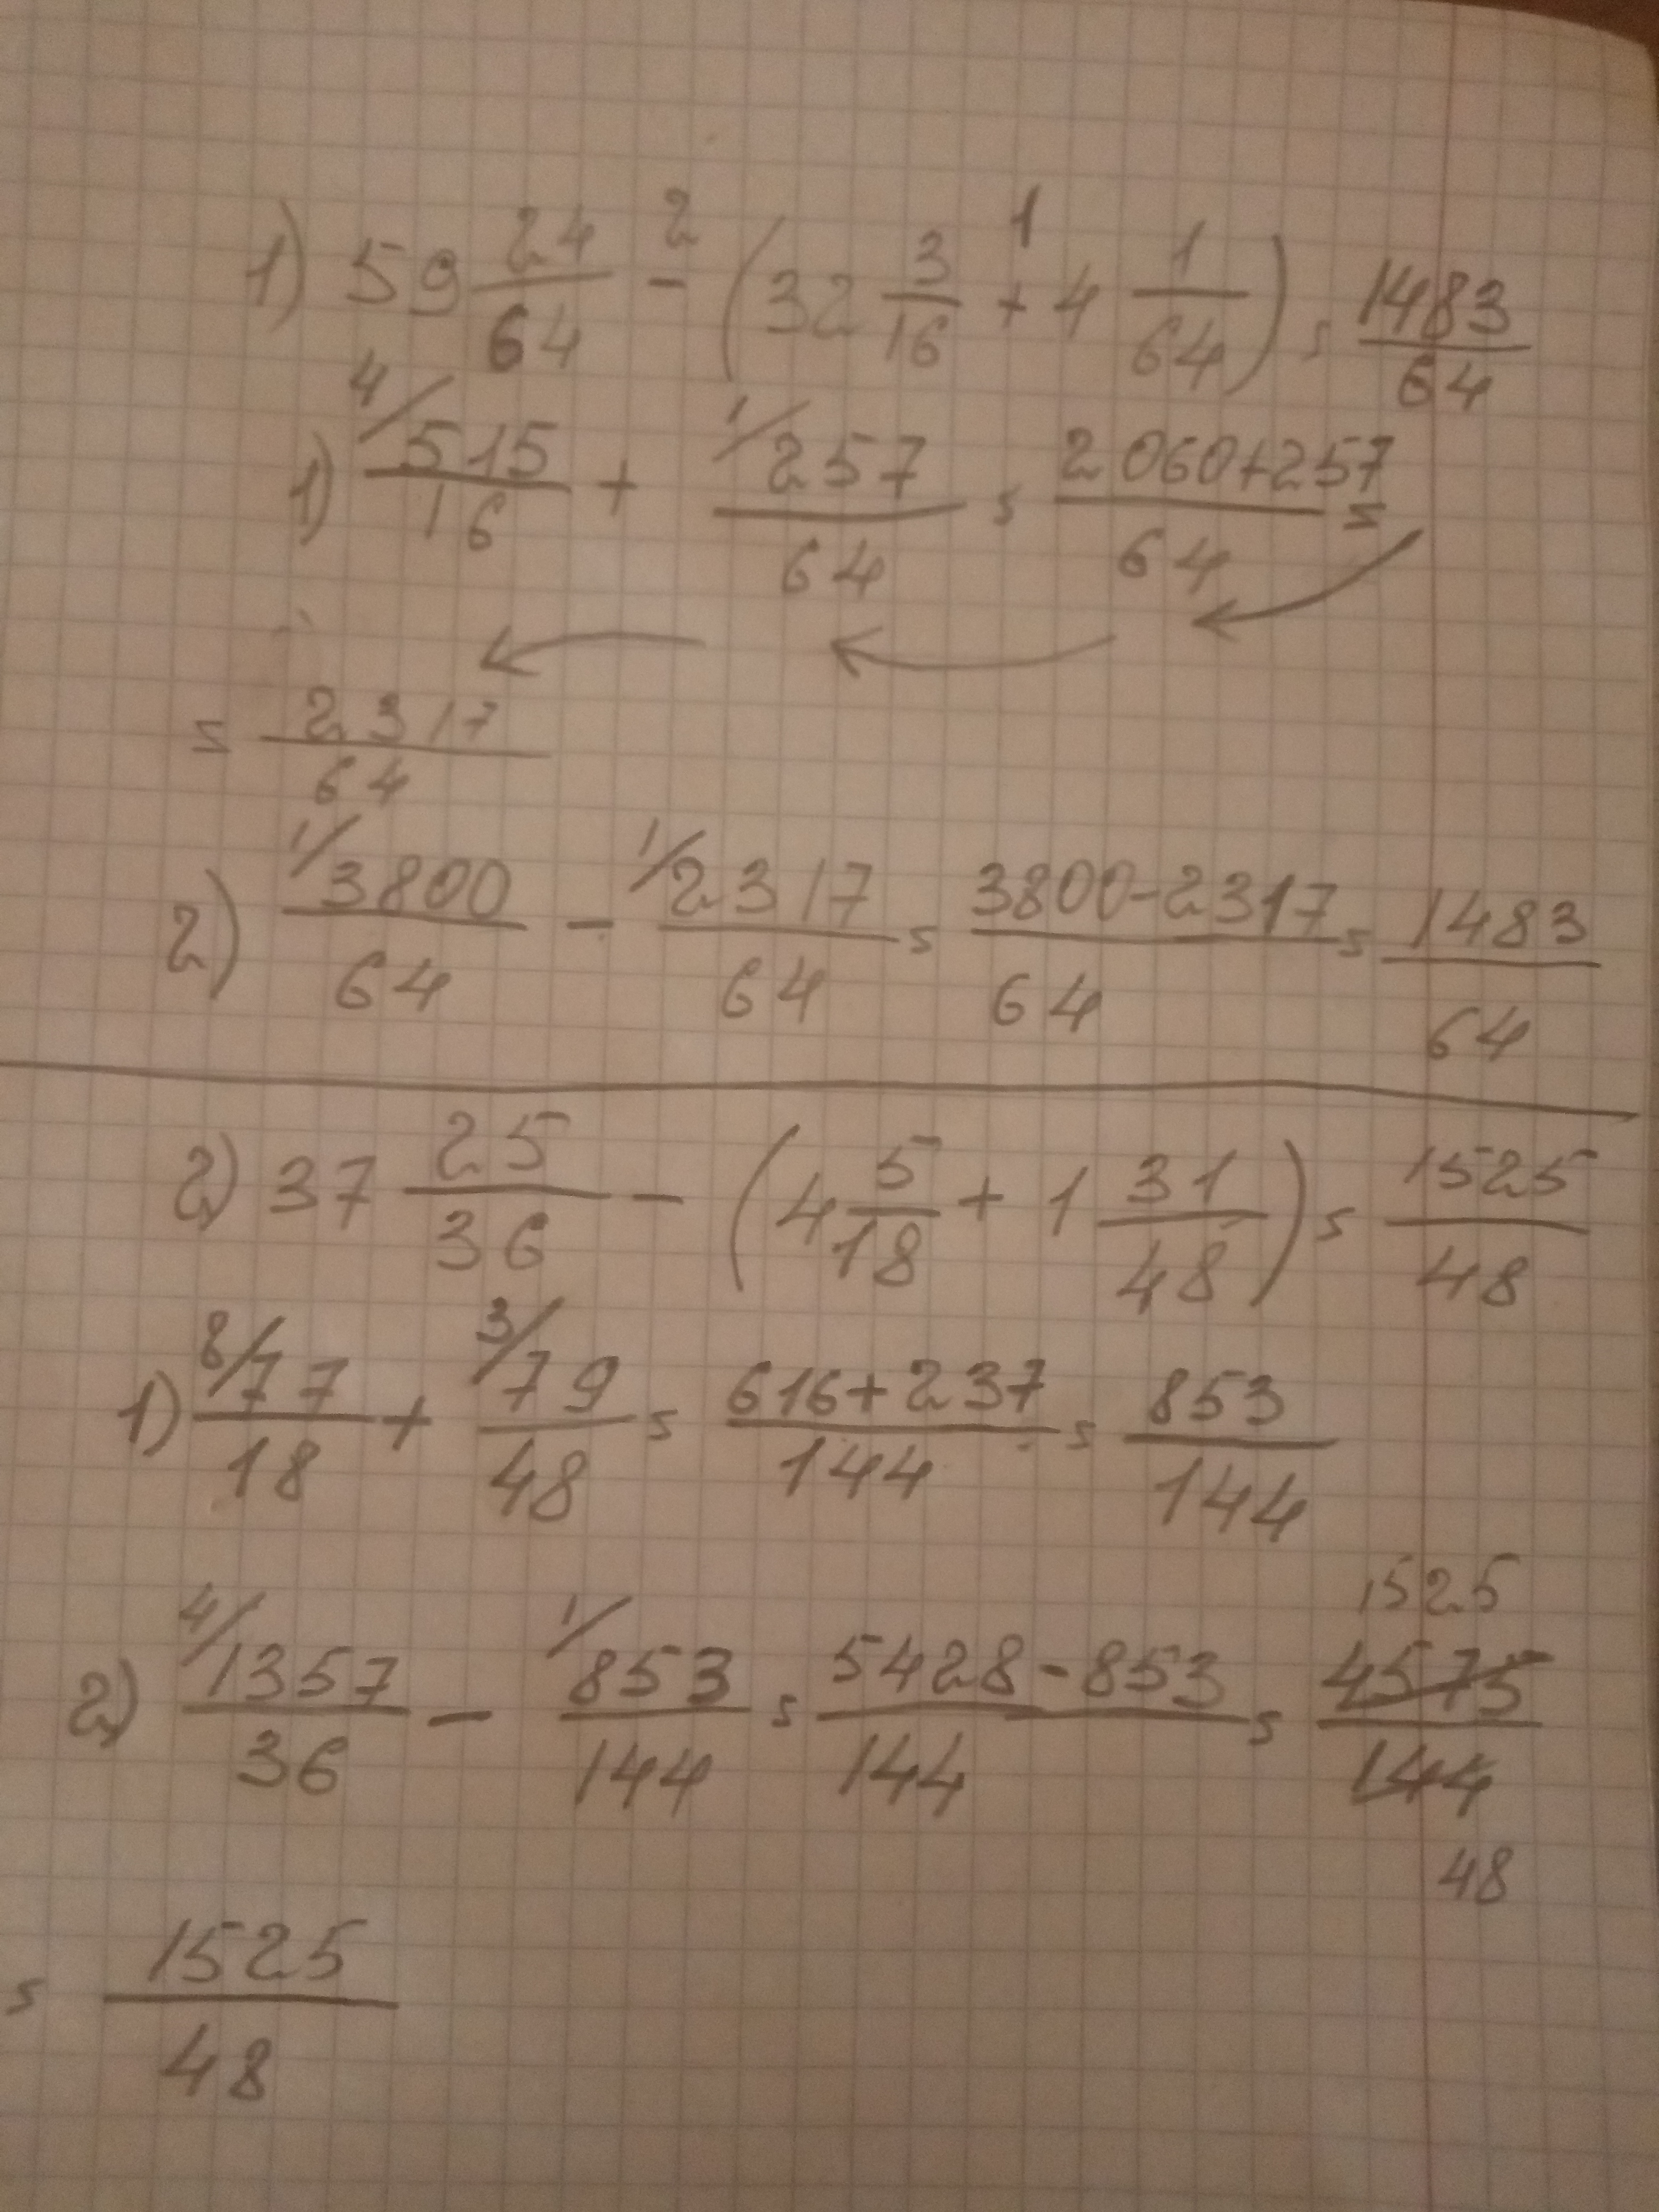 1) 59 24/64 -² (32 3/16 +¹ 4 1/64) = 1483/64
1) ⁴/515/16 + ¹/257/64 = 2060+257/64 =
= 2317/64
2) ¹/3800/64 - ¹/2317/64 = 3800-2317/64 = 1483/64
2) 37 25/36 - (4 5/18 + 1 31/48) = 1525/48
1) ⁸/77/18 + ³/79/48 = 616+237/144 = 853/144
2) ⁴/1357/36 - ¹/853/144 = 5428-853/144 = 4575/144 1525 48
= 1525/48